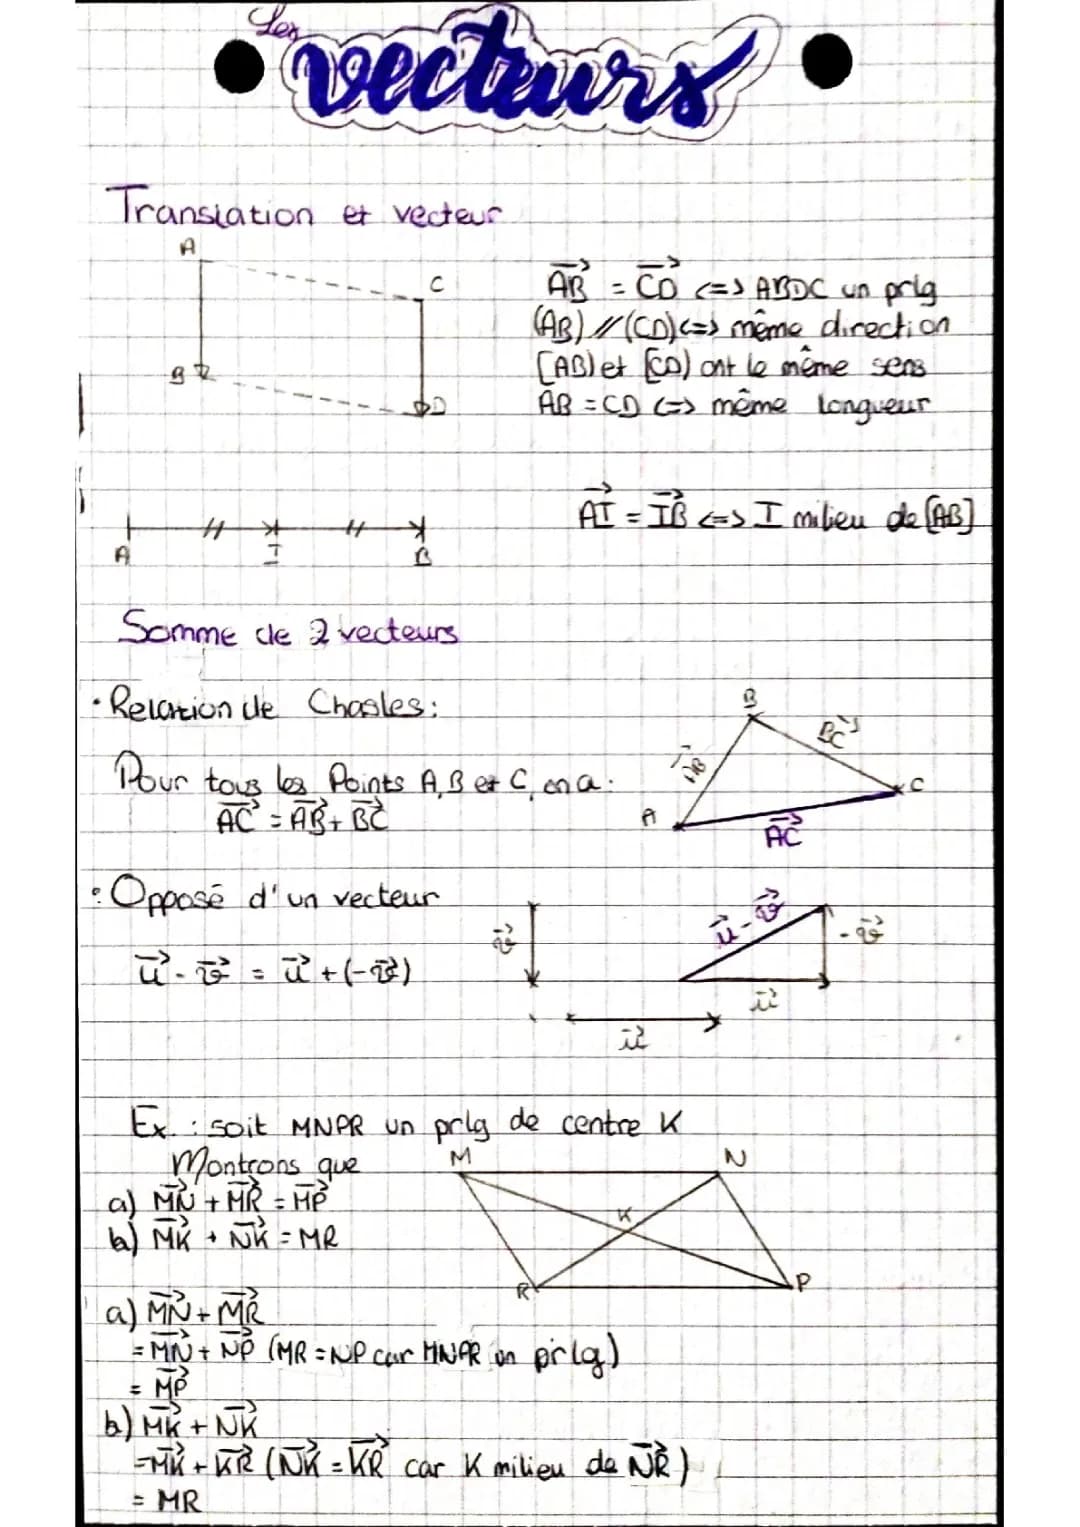 Les
vecteurs
Translation et vecteur
A
C
B
D
AB⃗ = CD⃗ <=> ABDC un prlg
(AB) // (CD) <=> même direction
[AB) et [CD) ont le même sens
AB = CD <=> même longueur
A
I
B
AI⃗ = IB⃗ <=> I milieu de [AB]
Somme de 2 vecteurs
• Relation de Chasles :
Pour tous les Points A, B et C, on a :
AC⃗ = AB⃗ + BC⃗
B
AB⃗
BC⃗
A
C
AC⃗
• Opposé d'un vecteur
u⃗ - v⃗ = u⃗ + (-v⃗)
v⃗
u⃗ - v⃗
- v⃗
u⃗
u⃗
Ex. : soit MNPR un prlg de centre K
Montrons que
a) MN⃗ + MR⃗ = MP⃗
b) MK⃗ + NK⃗ = MR
M
N
K
R
P
a) MN⃗ + MR⃗
= MN⃗ + NP⃗ (MR = NP car MNPR un prlg)
= MP⃗
b) MK⃗ + NK⃗
= MK⃗ + KR⃗ (NK⃗ = KR⃗ car K milieu de NR⃗)
= MR